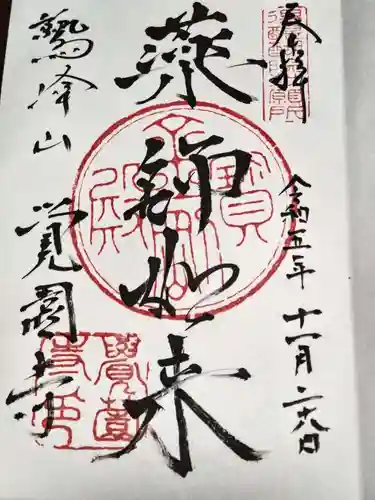 奉拝
令和五年 十一月二六日
薬師如来
鷲峰山 覚園寺